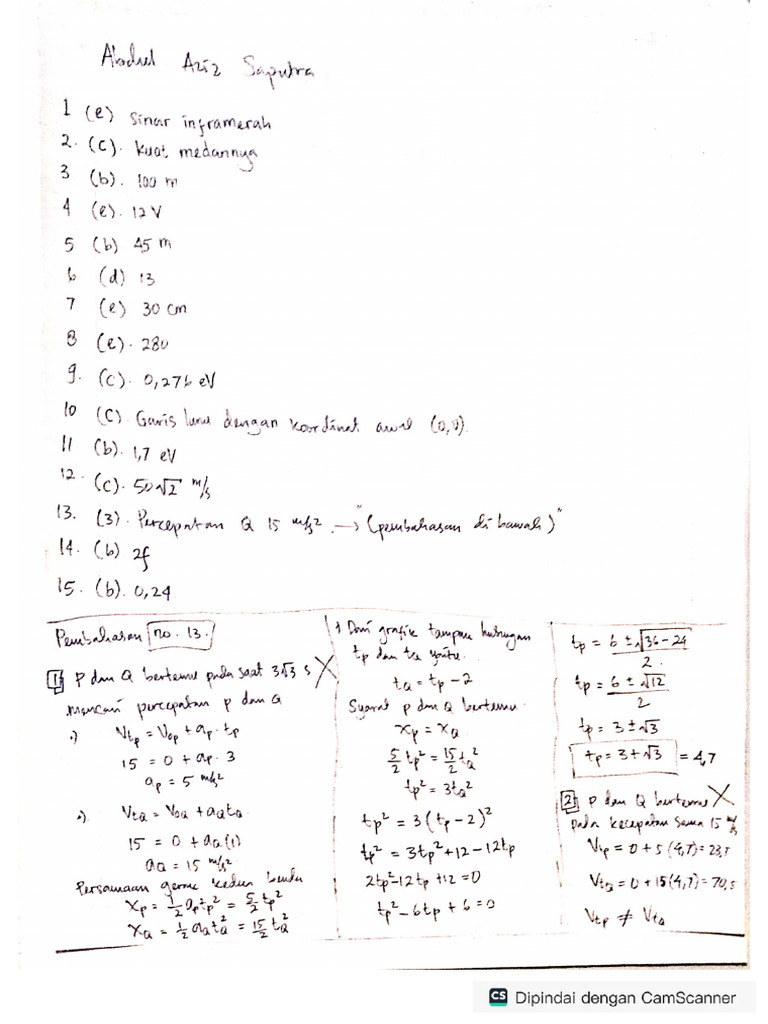 Abdul Aziz Saputra
1 (e) Sinar inframerah
2. (C). Kuat medannya
3 (b). 100 m
4 (e). 12 V
5 (b) 45 m
6 (d) 13
7 (e) 30 cm
8 (e). 280
9. (C). 0,276 eV
10 (C). Garis lurus dengan koordinat awal (0,0).
11 (b). 1,7 eV
12. (C). 50√2 m/s
13. (3). Percepatan Q 15 m/s² → "(pembahasan di bawah)"
14. (b) 2f
15. (b). 0,24
Pembahasan no. 13.
1 P dan Q bertemu pada saat 3√3 s X
Mencari percepatan P dan Q
•) Vtp = Vop + ap . tp
15 = 0 + ap . 3
ap = 5 m/s²
•) VtQ = VoQ + aQtQ
15 = 0 + aQ(1)
aQ = 15 m/s²
Persamaan gerak kedua benda
xp = 1/2 ap tp² = 5/2 tp²
xQ = 1/2 aQ tQ² = 15/2 tQ²
Dari grafik tampak hubungan
tp dan tQ yaitu.
tQ = tp - 2
Syarat P dan Q bertemu.
xp = xQ
5/2 tp² = 15/2 tQ²
tp² = 3tQ²
tp² = 3(tp - 2)²
tp² = 3tp² + 12 - 12tp
2tp² - 12tp + 12 = 0
tp² - 6tp + 6 = 0
tp = 6 ± √36 - 24 / 2.
tp = 6 ± √12 / 2
tp = 3 ± √3
tp = 3 + √3 = 4,7
2 P dan Q bertemu X
pada kecepatan sama 15 m/s
Vtp = 0 + 5 (4,7) = 23,5
VtQ = 0 + 15(4,7) = 70,5
Vtp ≠ VtQ
CS Dipindai dengan CamScanner